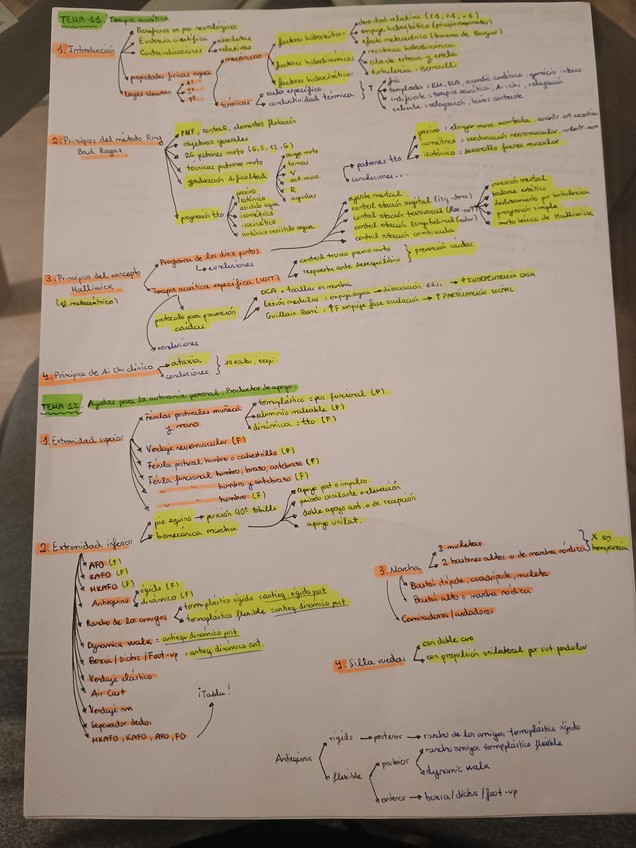 TEMA 11. Terapia acuática
1. Introducción
Beneficios en pac neurológicos
Evidencia científica
Contraindicaciones
absolutas
relativas
propiedades físicas agua
Leyes Newton
1ª
2ª
3ª
mecánicos
térmicos
factores hidrostáticos
factores hidrodinámicos
factores hidrocinéticos
densidad relativa
empuje hidrostático
efecto metacéntrico
resistencia hidrodinámica
ola de estrave y estela
turbulencia - Bernoulli
calor específico
conductividad térmica
T
fría
templada = EM, ELA, acondic cardiaco, ejercicio intenso
indiferente = terapia acuática, Ai-Chi, relajación
caliente = relajación, baños contraste
2. Principios del método Ring
Bad Ragaz
PNF, control, elementos flotación
objetivos generales
26 patrones mvto (6, 2, 12, 6)
técnicas patrones mvto
graduación dificultad
rango mvto
tomas
V
R
ayudas
progresión tto
pasivo
isotónico
asistido agua
isométrico
isocinético
isotónico resistido agua
patrones tto
conclusiones...
pasivo = elongar musc acortada
isométrico = reeducación neuromuscular
isotónico = desarrollo fuerza muscular
3. Principios del concepto
Halliwick
(ef. metacéntrico)
Programa de los diez puntos
conclusiones
ajuste mental
control rotación sagital
control rotación transversal
control rotación longitudinal
control rotación combinada
inversión mental
balance estático
deslizamiento por turbulencia
progresión simple
mvto básico de Halliwick
Terapia acuática específica (WST)
control tronco previo mvto
respuesta ante desequilibrio
prevención caídas
protocolo para prevención
caídas
DCA = toallas en marcha
Lesión medular = empuje agua → disociación EEII → ↑ INDEPENDENCIA CASA
Guillain Barré = ↑F empuje fase oscilación → ↑ PARTICIPACIÓN SOCIAL
conclusiones
4. Principios de Ai Chi clínico
ataxia
conclusiones
19 katas, respi.
TEMA 12. Ayudas para la autonomía personal. Productos de apoyo
1. Extremidad superior
Férulas posturales muñeca
y mano
termoplástico = pos funcional (P)
aluminio maleable (P)
dinámica = tto (F)
Vendaje neuromuscular (F)
Férula postural hombro o cabestrillo (P)
Férula funcional hombro, brazo, antebrazo (F)
" " hombro y antebrazo (F)
" " hombro (F)
2. Extremidad inferior
pie equino → posición 90º tobillo
biomecánica marcha
apoyo post o impulso
periodo oscilante o elevación
doble apoyo ant. o de recepción
apoyo unilat.
AFO (F)
KAFO (F)
HKAFO (F)
Antiequino
rígido (F)
dinámico (F)
Rancho de los amigos
termoplástico rígido = antieq. rígido post
termoplástico flexible = antieq dinámico post
Dynamic walk = antiequ dinámico post
Boxia / Dictus / Foot-up = antieq. dinámico ant.
Vendaje elástico
Air Cast
Vendaje nm
Separador dedos
HKAFO, KAFO, AFO, FO
¡Tabla!
3. Marcha
2 muletas
2 bastones altos o de marcha nórdica
X en
hemiparesia
Bastón trípode, cuadrípode, muleta
Bastón alto o marcha nórdica
Caminadores / andadores
4. Silla ruedas
con doble aro
con propulsión unilateral por sist pendular
Antiequinos
rígido → posterior → rancho de los amigos termoplástico rígido
flexible
posterior
rancho amigos termoplástico flexible
dynamic walk
anterior → boxia / dictus / foot-up